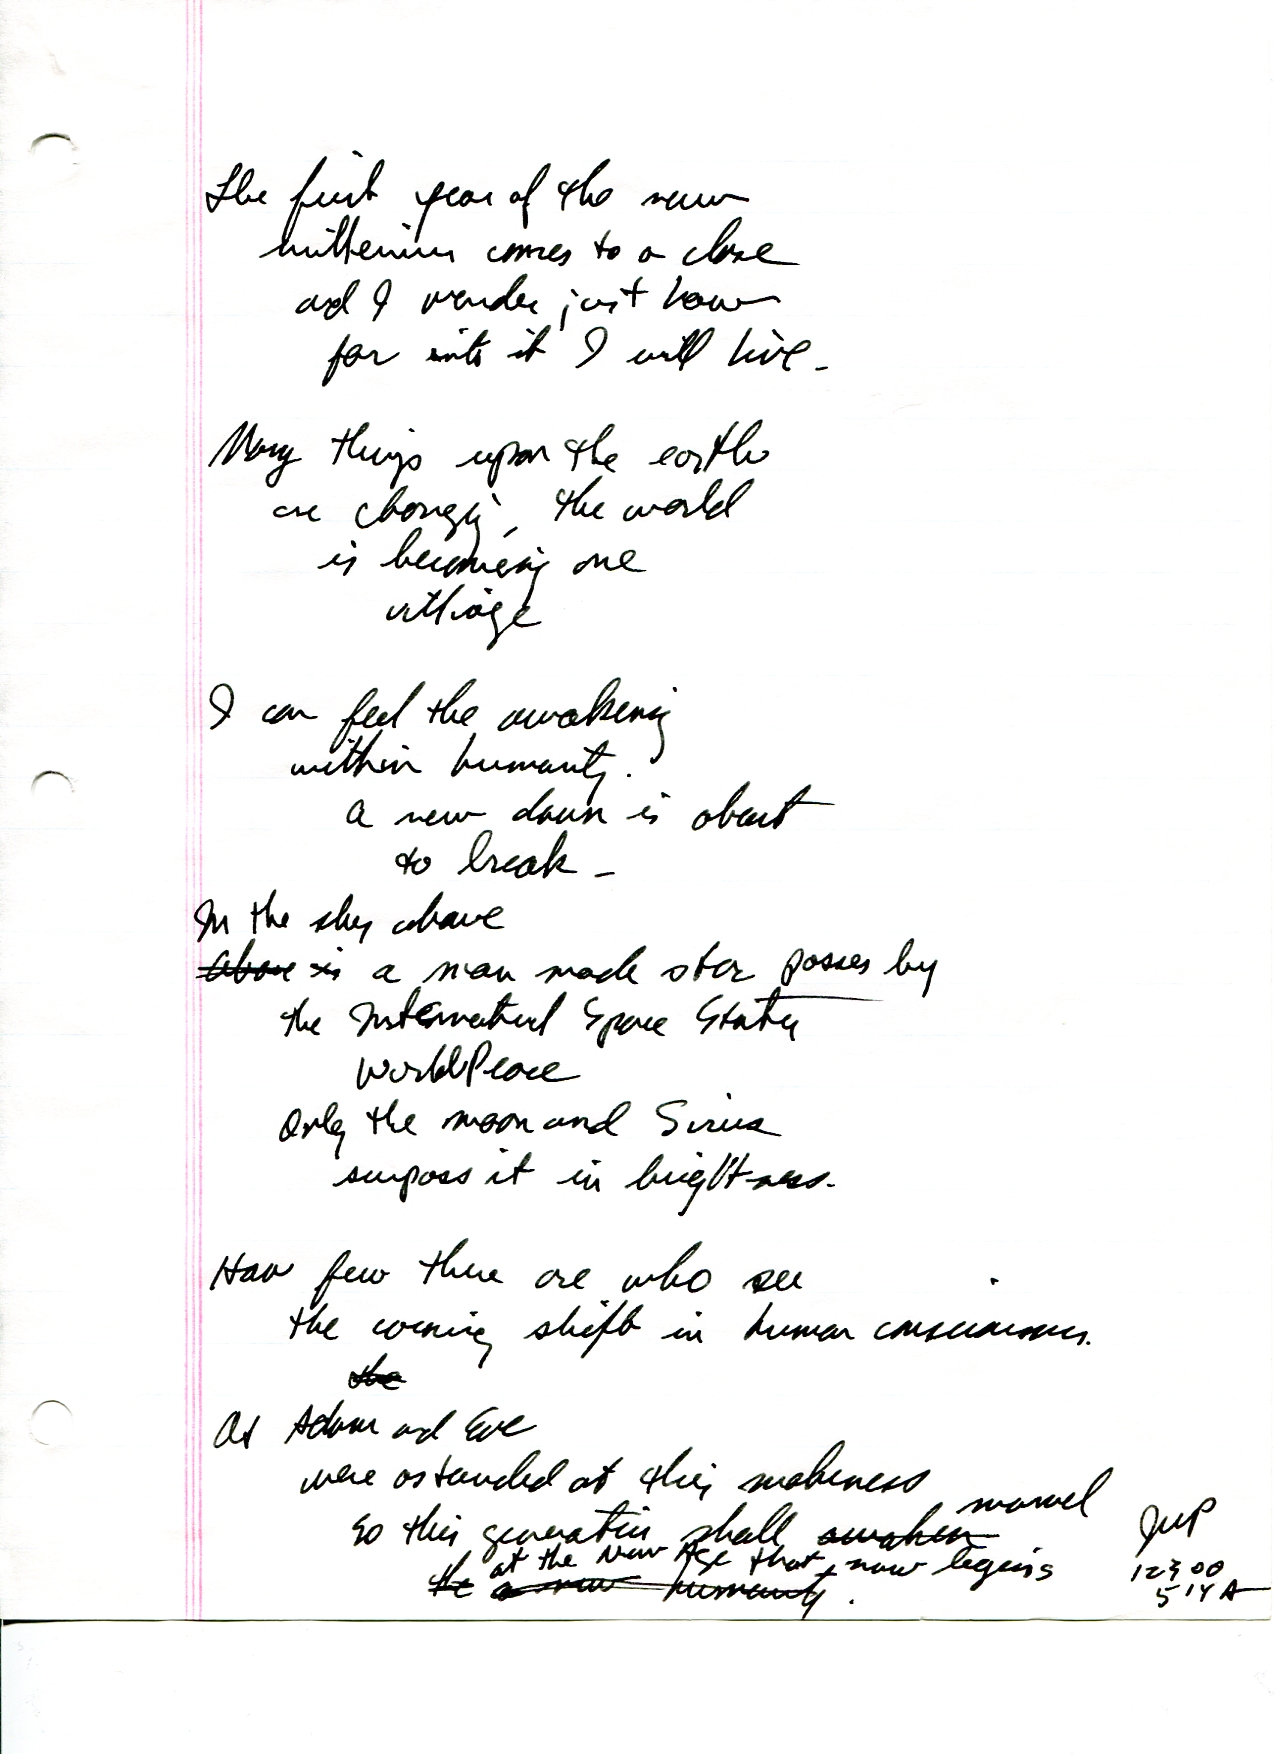 The first year of the new
millenium comes to a close
and I wonder just how
far into it I will live -
Many things upon the earth
are changing, the world
is becoming one
village
I can feel the awakening
within humanity.
A new dawn is about
to break -
In the sky above
above is a man made star passes by
the International Space Station
World Peace
Only the moon and Sirius
surpass it in brightness.
How few there are who see
the coming shift in human consciousness.
the
As Adam and Eve
were astounded at their
so this generation shall awaken marvel
the at the New Age that now begins
a new humanity.
JWP
12 3 00
5 14 A